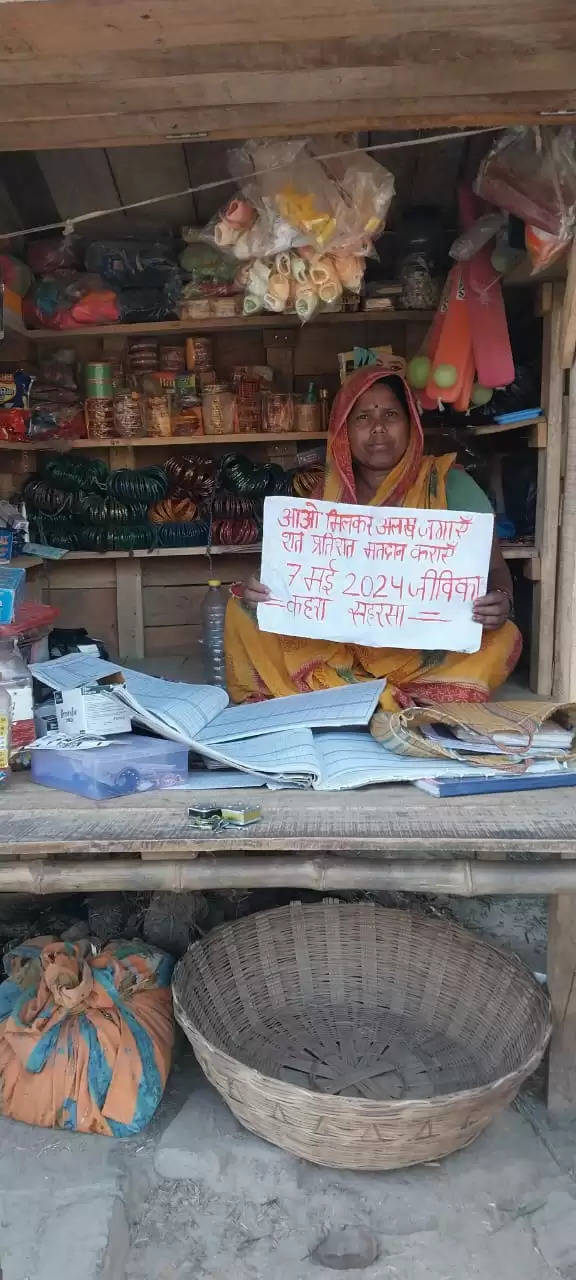 आओ मिलकर अलख जगाएँ
शत प्रतिशत मतदान कराएँ
7 मई 2024 जीविका
कहरा सहरसा